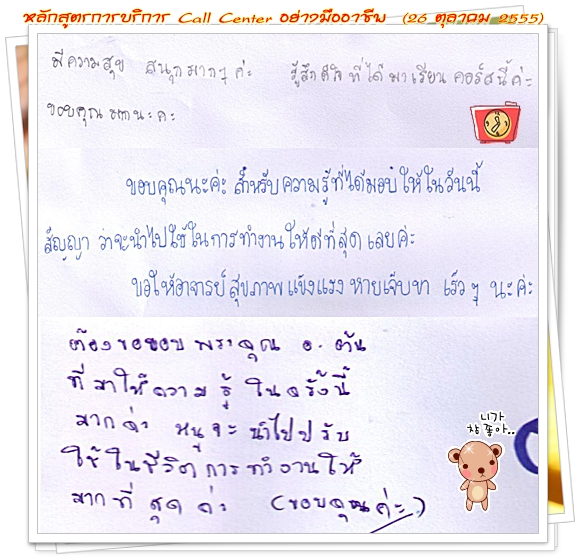 หลักสูตรการบริการ Call Center อย่างมืออาชีพ (26 ตุลาคม 2555)
มีความสุข สนุกมากๆ ค่ะ รู้สึกดีใจ ที่ได้มาเรียน คอร์สนี้ค่ะ
ขอบคุณ นะคะ
ขอบคุณนะค่ะ สำหรับความรู้ที่ได้มอบให้ในวันนี้
สัญญา ว่าจะนำไปใช้ในการทำงานให้ดีที่สุดเลยค่ะ
ขอให้อาจารย์สุขภาพแข็งแรง หายเจ็บขา เร็วๆ นะค่ะ
ต้องขอขอบพระคุณ อ. ตัน
ที่มาให้ความรู้ ในครั้งนี้
มากค่ะ หนูจะนำไปปรับ
ใช้ในชีวิตการทำงานให้
มากที่สุดค่ะ (ขอบคุณค่ะ)
니가
참 좋아..